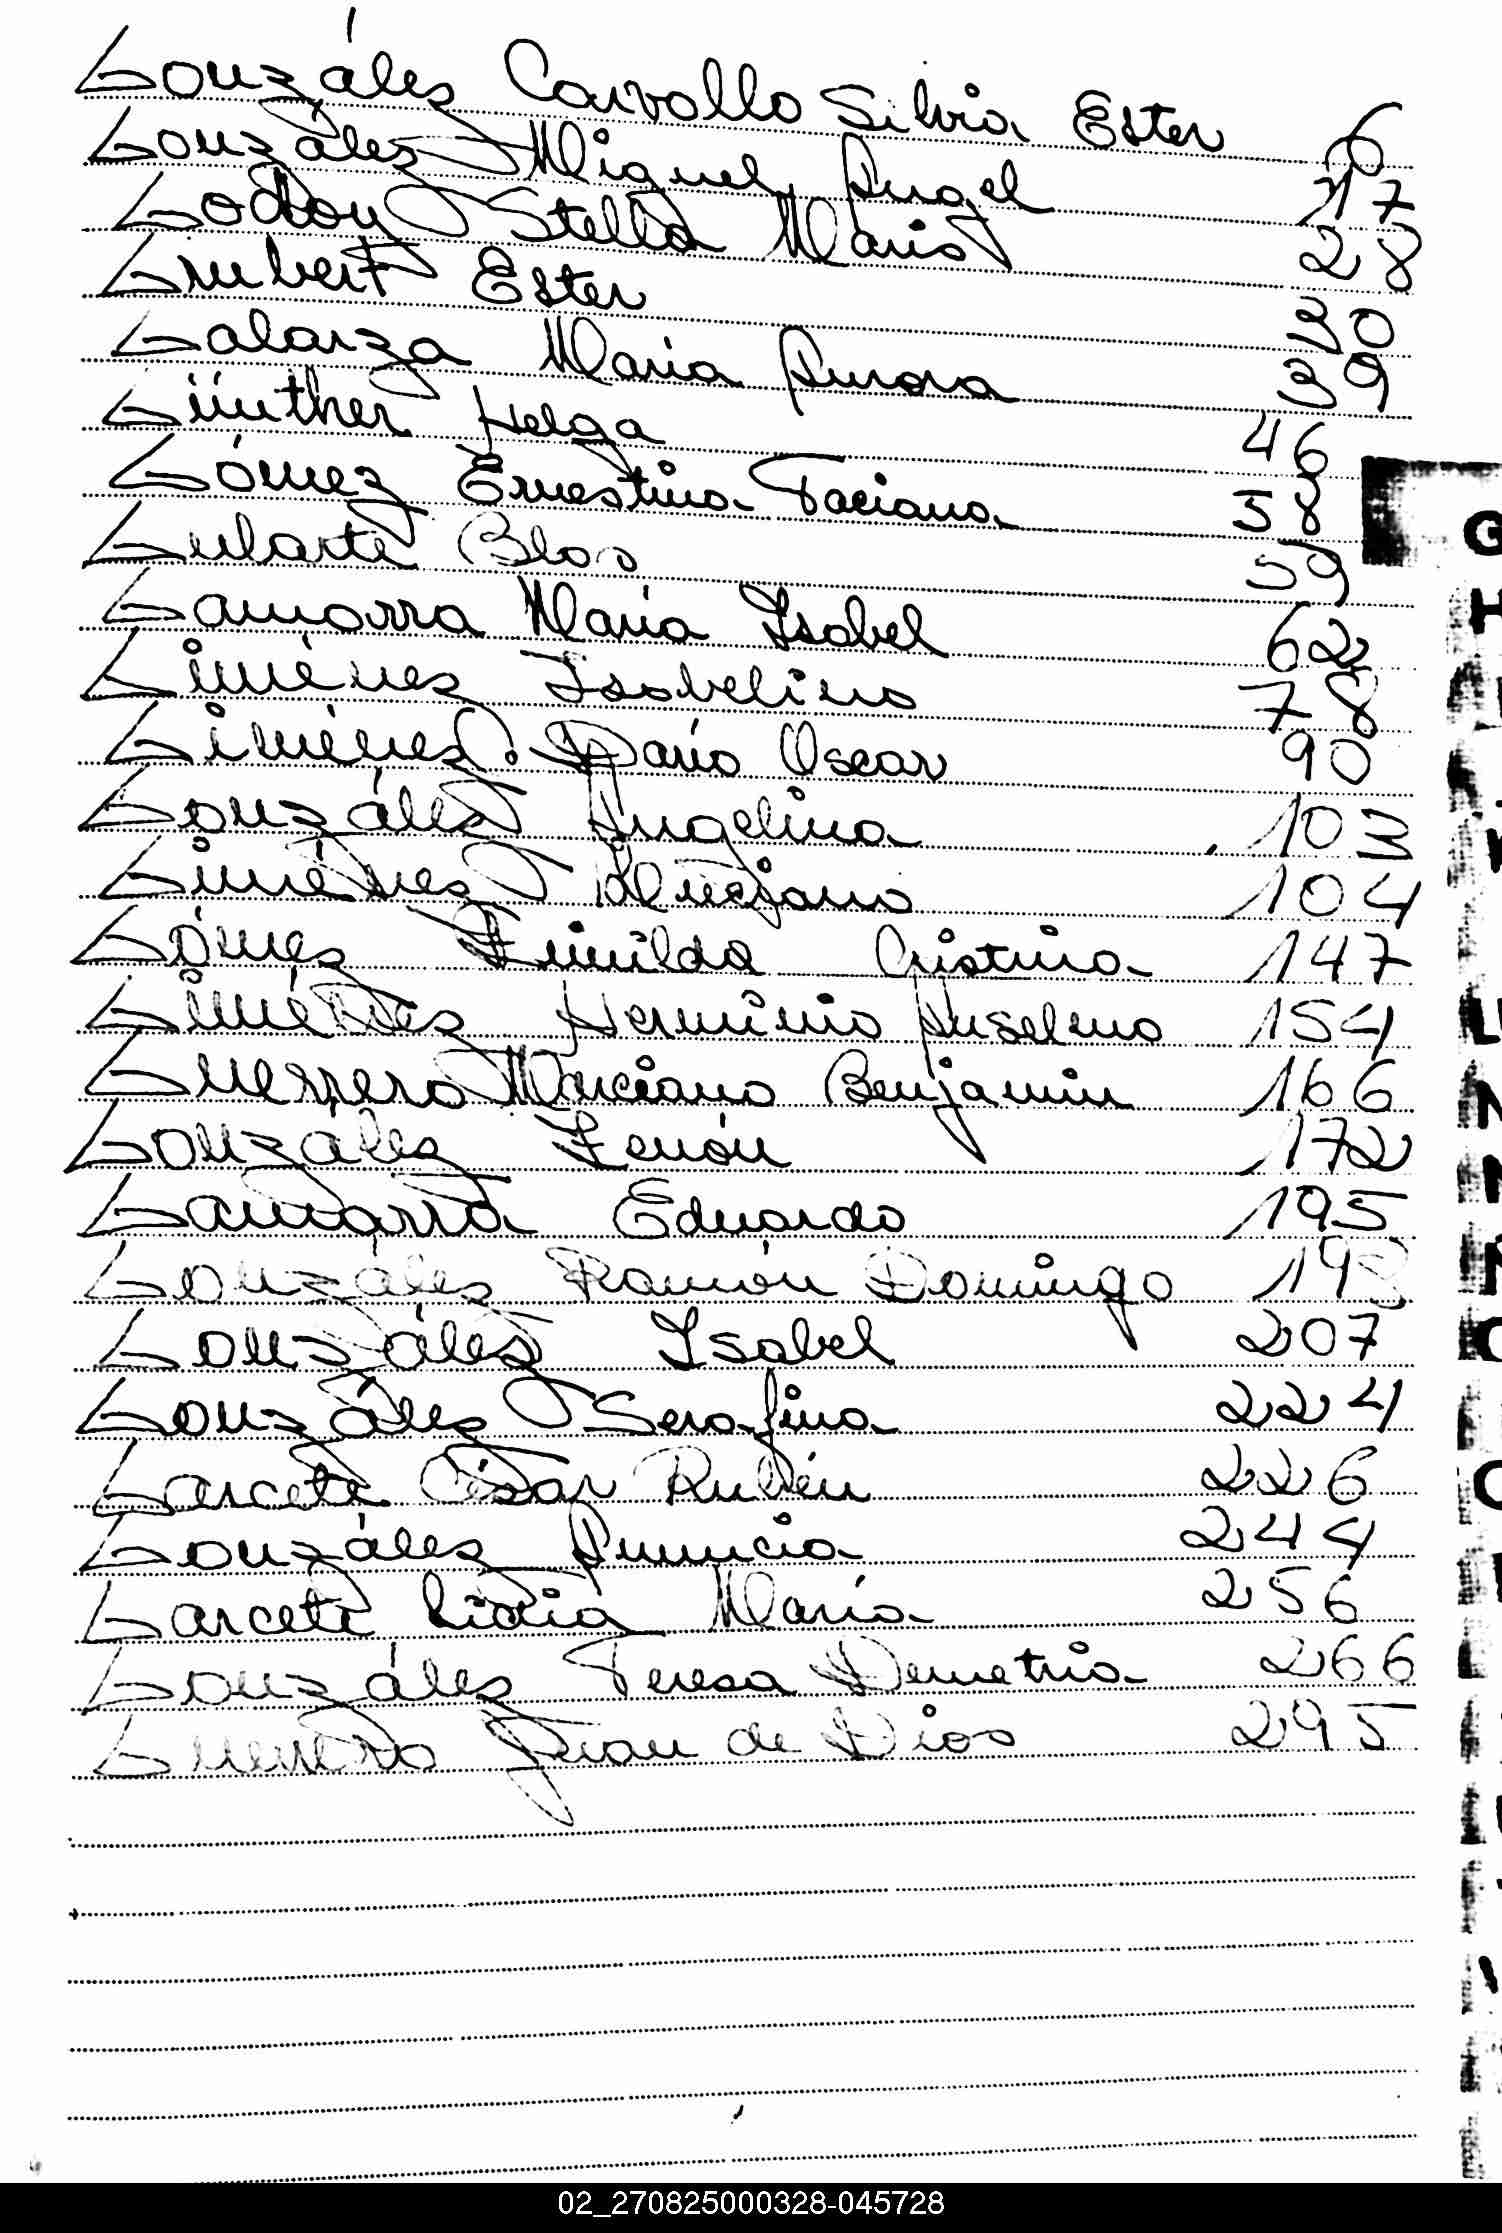 Gonzáles Carvallo Silvia Ester 6
Gonzáles Miguel Angel 17
Godoy Stella Maris 28
Grubert Ester 30
Galarza Maria Aurora 39
Günther Helga 46
Gómez Ernestina Taciana 58
Gularte Blas 59
Gamorra María Isabel 62
Giménes Isabelino 78
Giménes Darío Oscar 90
Gonzáles Angelina 103
Giménes 104
Gómes Zunilda Cristina 147
Giménes Herminio Anselmo 154
Guerrero Marciano Benjamin 166
Gonzáles Zenón 172
Gamarra Eduardo 195
Gonzáles Ramón Domingo 198
Gonzáles Isabel 207
Gonzáles Serafina 224
Garcete César Rubén 226
Gonzáles Anuncia 244
Garcete Lidia María 256
Gonzáles Teresa Demetria 266
Juan de Dios 295
G
H
02_270825000328-045728